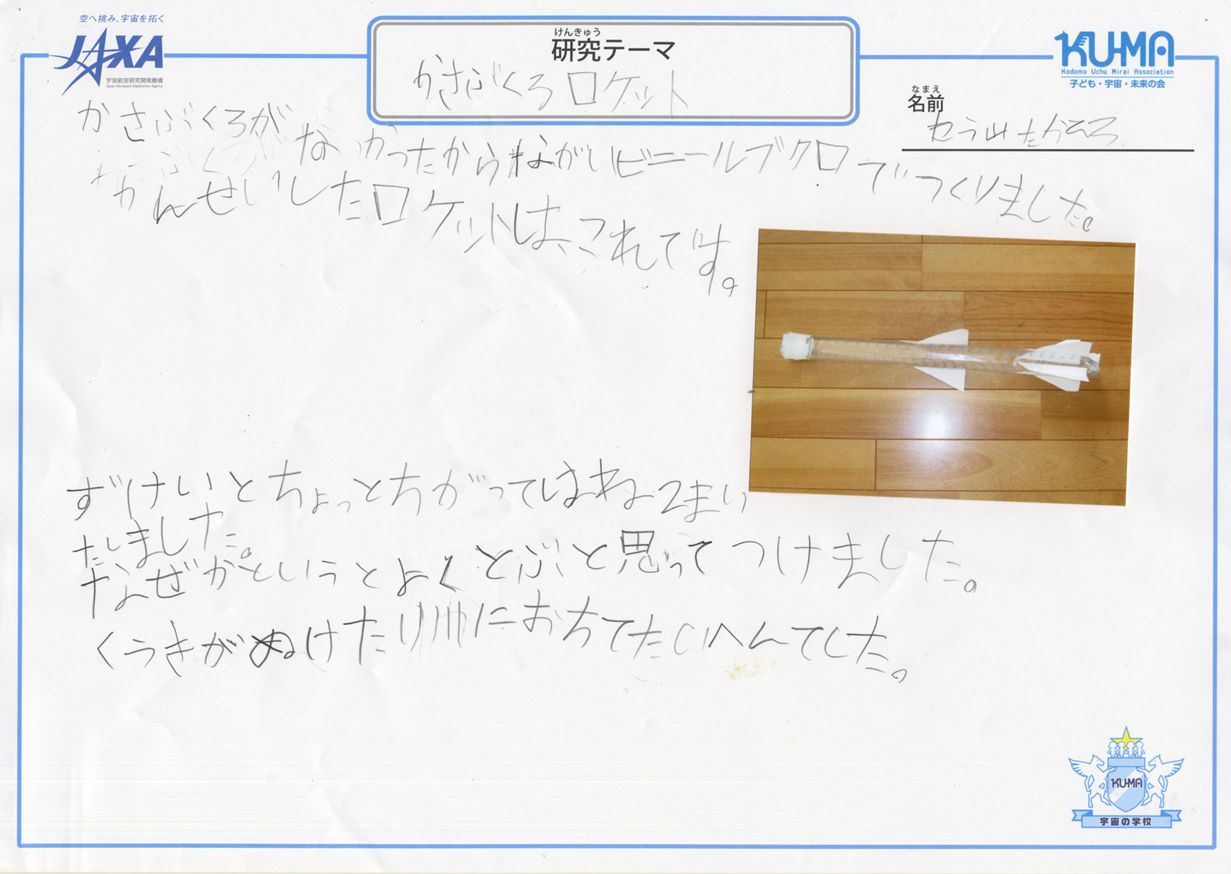 空へ挑み、宇宙を拓く
JAXA
宇宙航空研究開発機構
Japan Aerospace Exploration Agency
けんきゅう
研究テーマ
かさぶくろロケット
KU-MA
Kodomo Uchu Mirai Association
子ども・宇宙・未来の会
なまえ
名前
かさぶくろがなかったからながいビニールブクロでつくりました。
かんせいしたロケットは、これです。
ずけいとちょっとちがってはねを2まい
たしました。
なぜかというとよくとぶと思ってつけました。
くうきがぬけたり川におちてたいへんでした。
KU-MA
宇宙の学校